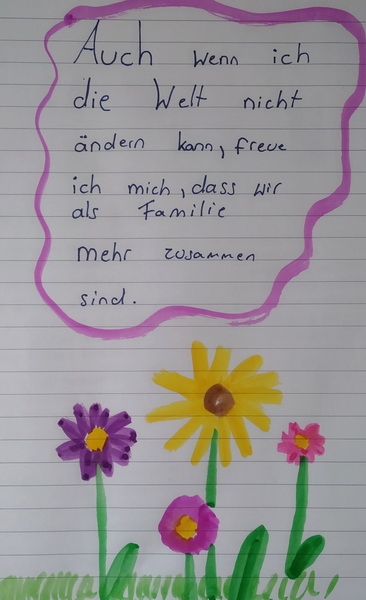 Auch wenn ich
die Welt nicht
ändern kann, freue
ich mich, dass wir
als Familie
mehr zusammen
sind.